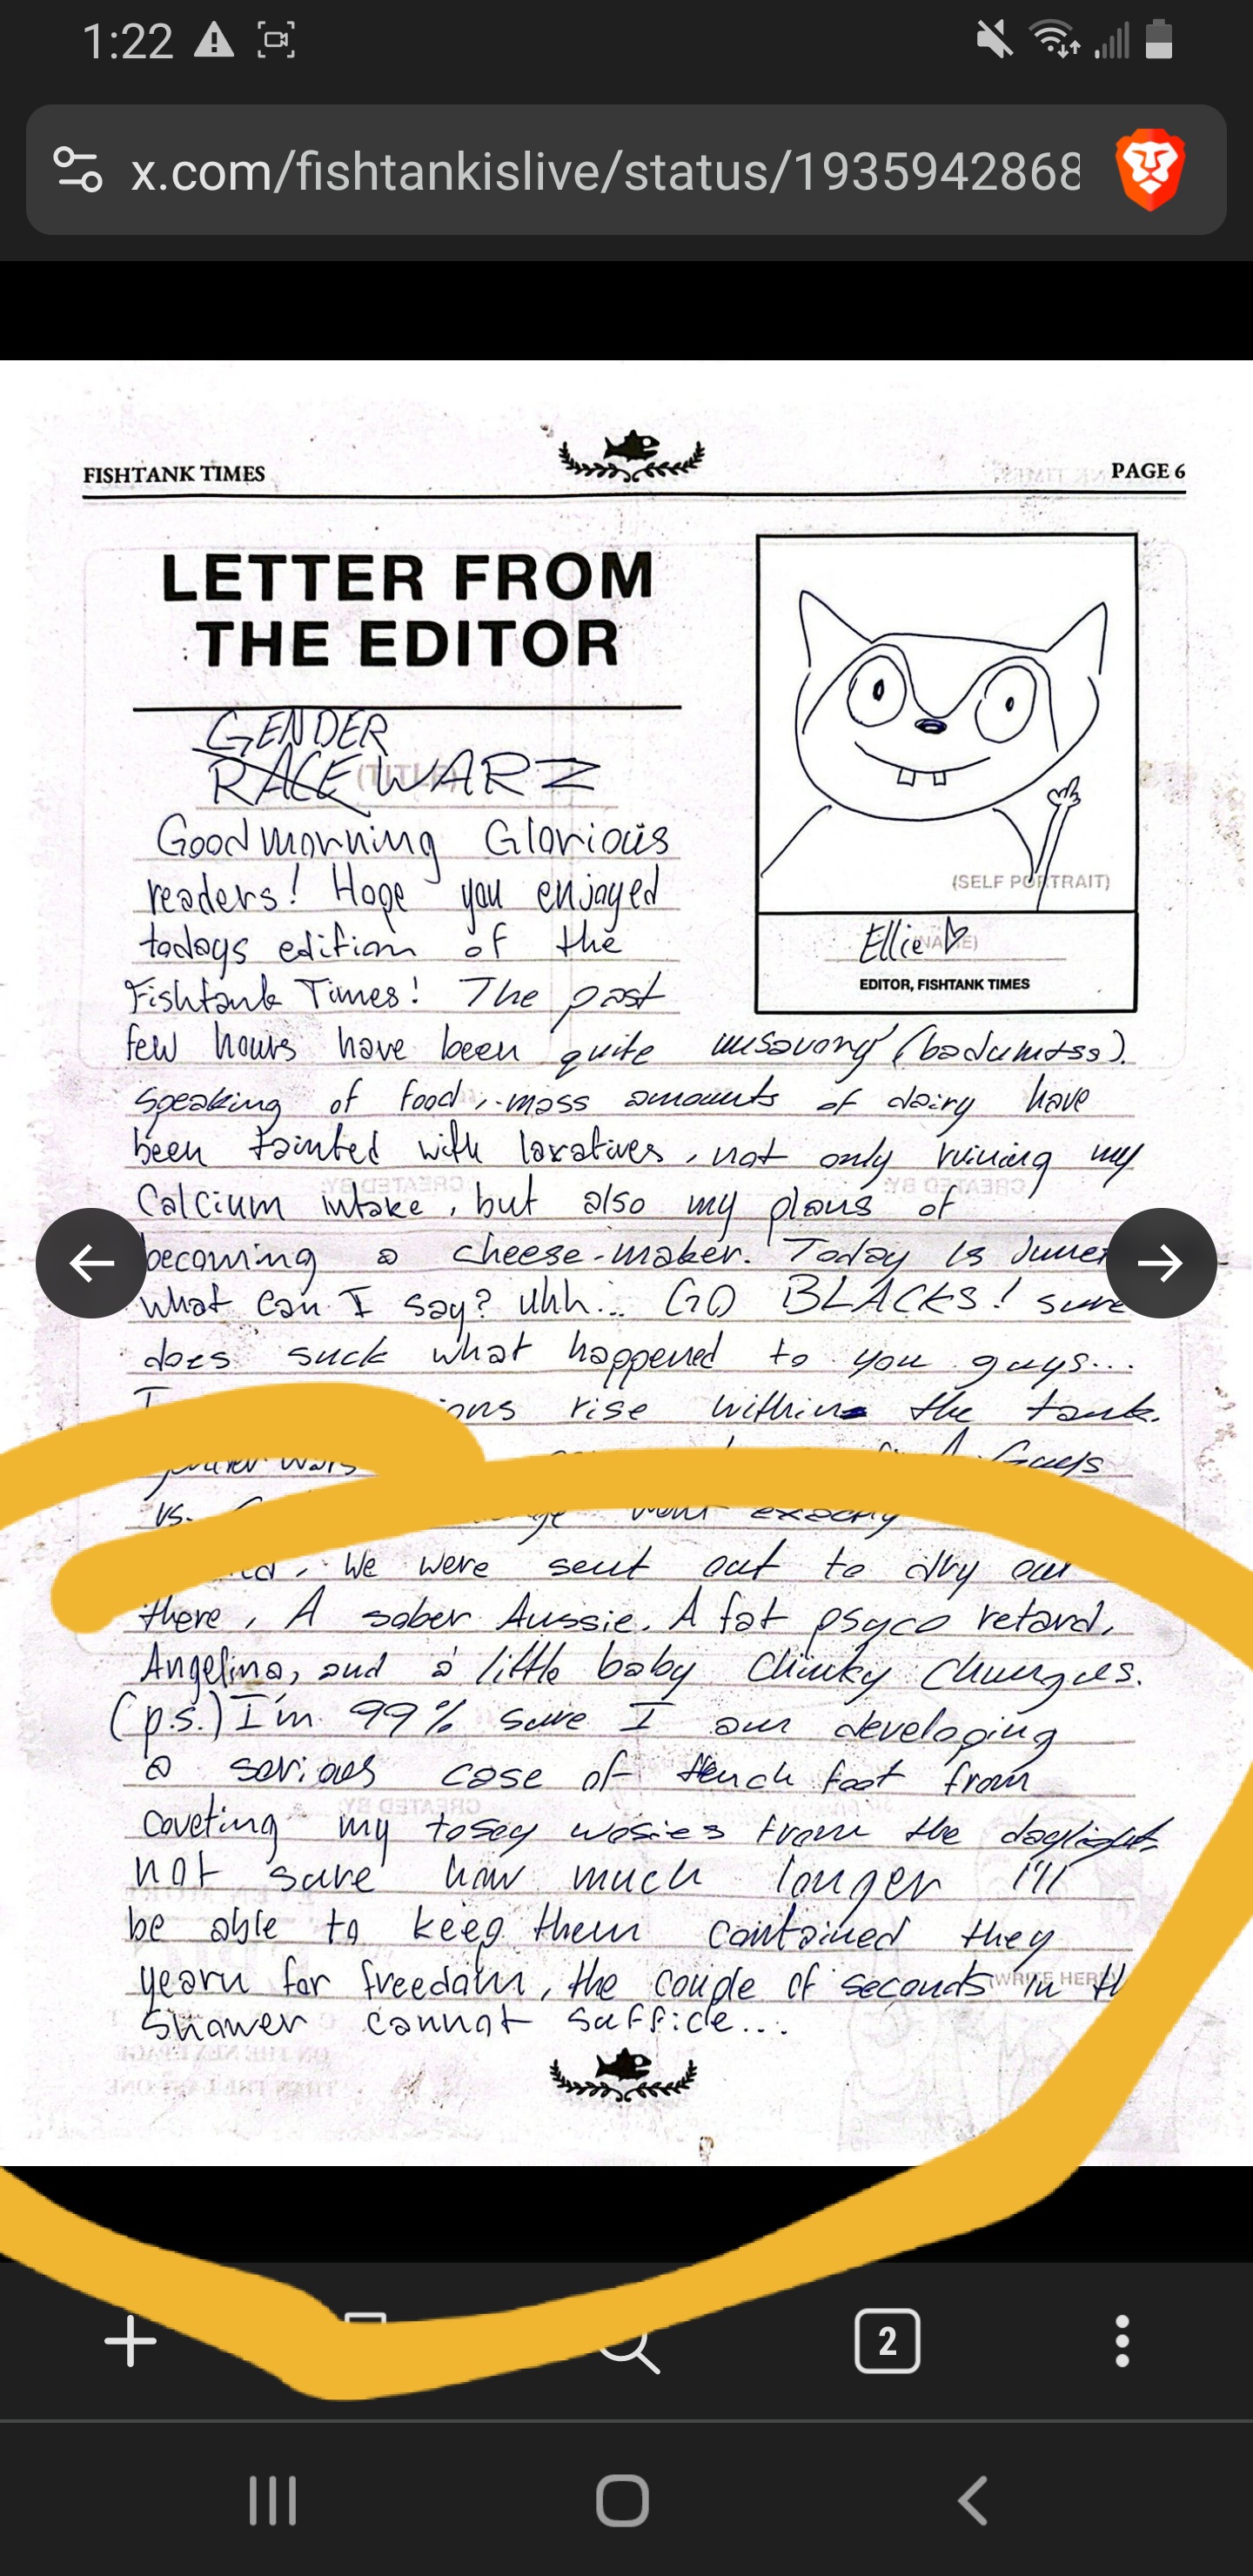 1:22
x.com/fishtankislive/status/1935942868
FISHTANK TIMES
PAGE 6
LETTER FROM
THE EDITOR
GENDER
RACE WARZ
Good morning Glorious
readers! Hope you enjoyed
todays edition of the
Fishtank Times! The past
few hours have been quite unsavory (badumtss).
(SELF PORTRAIT)
Ellie
EDITOR, FISHTANK TIMES
Speaking of food, mass amounts of dairy have
been tainted with laxatives, not only ruining my
Calcium intake, but also my plans of
becoming a cheese-maker. Today is
what can I say? Uhh... GO BLACKS! sure
does suck what happened to you guys...
rise within the tank.
wars Guys
vs. went exactly
We were sent out to dry out
there, A sober Aussie. A fat psyco retard,
Angelina, and a little baby Chinky Chungus.
(p.s.) I'm 99% sure I am developing
a serious case of trench foot from
coveting my tosey wosies from the daylight.
not sure how much longer I'll
be able to keep them contained they
yearn for freedom, the couple of seconds in th
Shower cannot suffice...
(WRITE HERE)
2